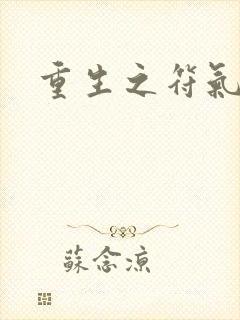 重生之符氣
蘇念涼